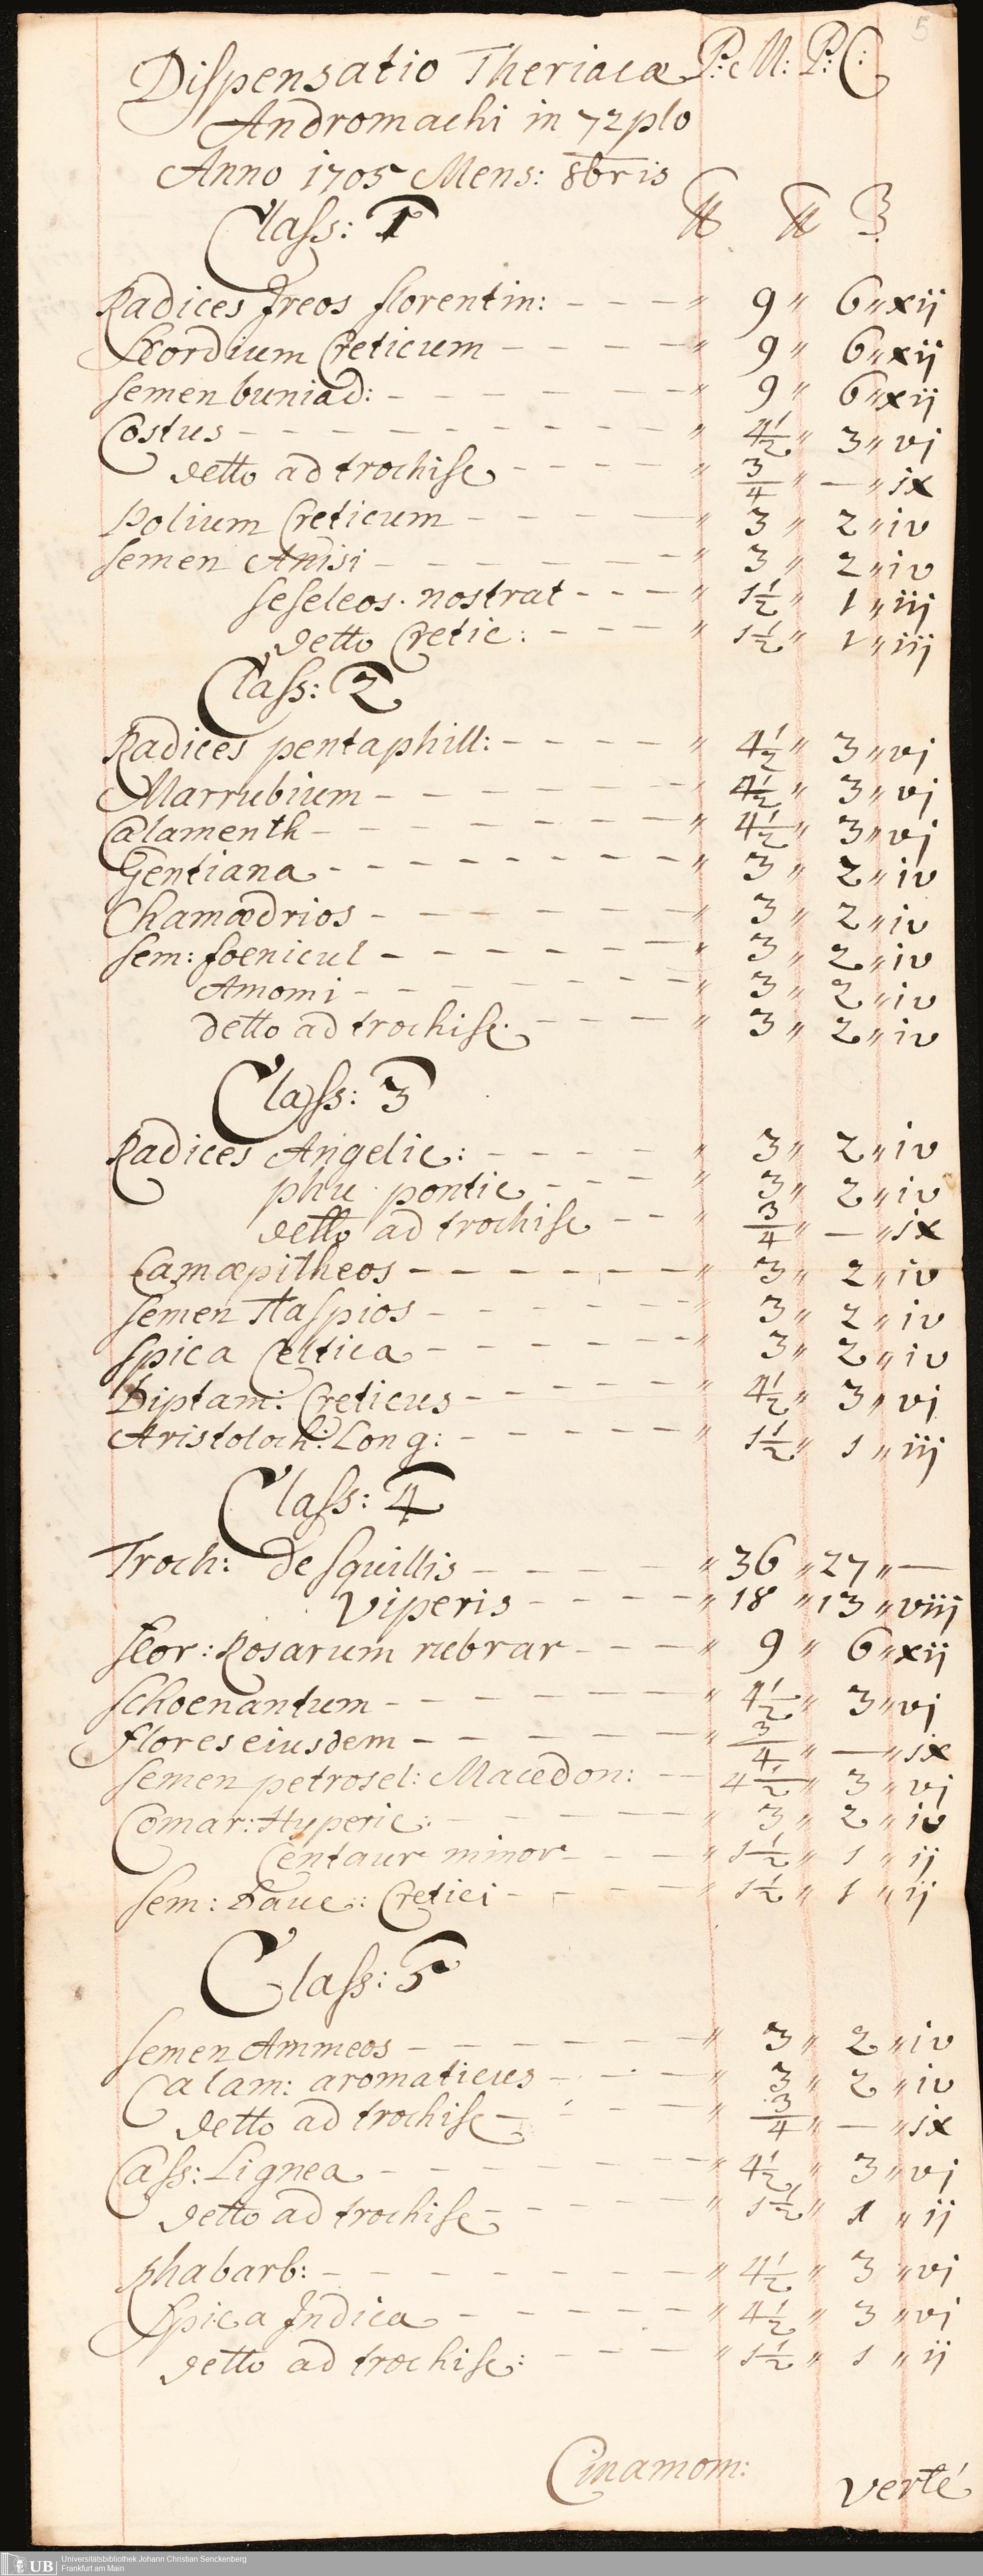 5
Dispensatio Theriacæ P: M: P: C:
Andromachi in 72plo
Anno 1705 Mens: 8bris
Class: 1 ℔ ℔ ℥
Radices Jreos florentin: - - - " 9 " 6 " xij
Scordium Creticum - - - - " 9 " 6 " xij
Semen buniad: - - - - - - - " 9 " 6 " xij
Costus - - - - - - - - - - " 4½ " 3 " vj
detto ad trochisc - - - - " ¾ " — " ix
Polium Creticum - - - - - " 3 " 2 " iv
Semen Anisi - - - - - - - " 3 " 2 " iv
Seseleos nostrat - - - - " 1½ " 1 " iij
detto Cretic: - - - - " 1½ " 1 " iij
Class: 2
Radices pentaphill: - - - - - " 4½ " 3 " vj
Marrubium - - - - - - - " 4½ " 3 " vj
Calamenth - - - - - - - - " 4½ " 3 " vj
Gentiana - - - - - - - - " 3 " 2 " iv
Chamædrios - - - - - - - " 3 " 2 " iv
Sem: foenicul - - - - - - - " 3 " 2 " iv
Amomi - - - - - - - - " 3 " 2 " iv
detto ad trochisc: - - - - " 3 " 2 " iv
Class: 3
Radices Angelic: - - - - - " 3 " 2 " iv
phu pontic - - - - " 3 " 2 " iv
detto ad trochisc - - " ¾ " — " ix
Camæpitheos - - - - - - - " 3 " 2 " iv
Semen Tlaspios - - - - - - " 3 " 2 " iv
Spica Celtica - - - - - - - " 3 " 2 " iv
Diptam: Creticus - - - - - - " 4½ " 3 " vj
Aristoloch: Long: - - - - - - " 1½ " 1 " iij
Class: 4
Troch: de Squillis - - - - - " 36 " 27 " —
Viperis - - - - - " 18 " 13 " viij
Flor: Rosarum rubrar - - - - " 9 " 6 " xij
Schoenantum - - - - - - - " 4½ " 3 " vj
flores eiusdem - - - - - - - " ¾ " — " ix
Semen petrosel: Macedon: - - 4½ " 3 " vj
Comar: Hyperic: - - - - - - " 3 " 2 " iv
Centaur minor - - - - " 1½ " 1 " ij
Sem: Dauc: Cretici - - - - - " 1½ " 1 " ij
Class: 5
Semen Ammeos - - - - - - - " 3 " 2 " iv
Calam: aromaticus - - - - " 3 " 2 " iv
detto ad trochisc - - - - - " ¾ " — " ix
Cass: Lignea - - - - - - - - " 4½ " 3 " vj
detto ad trochisc - - - - - - " 1½ " 1 " ij
Rhabarb: - - - - - - - - - " 4½ " 3 " vj
Spica Indica - - - - - - " 4½ " 3 " vj
detto ad trochisc: - - - " 1½ " 1 " ij
Cinamom:
verté
UB Universitätsbibliothek Johann Christian Senckenberg
Frankfurt am Main